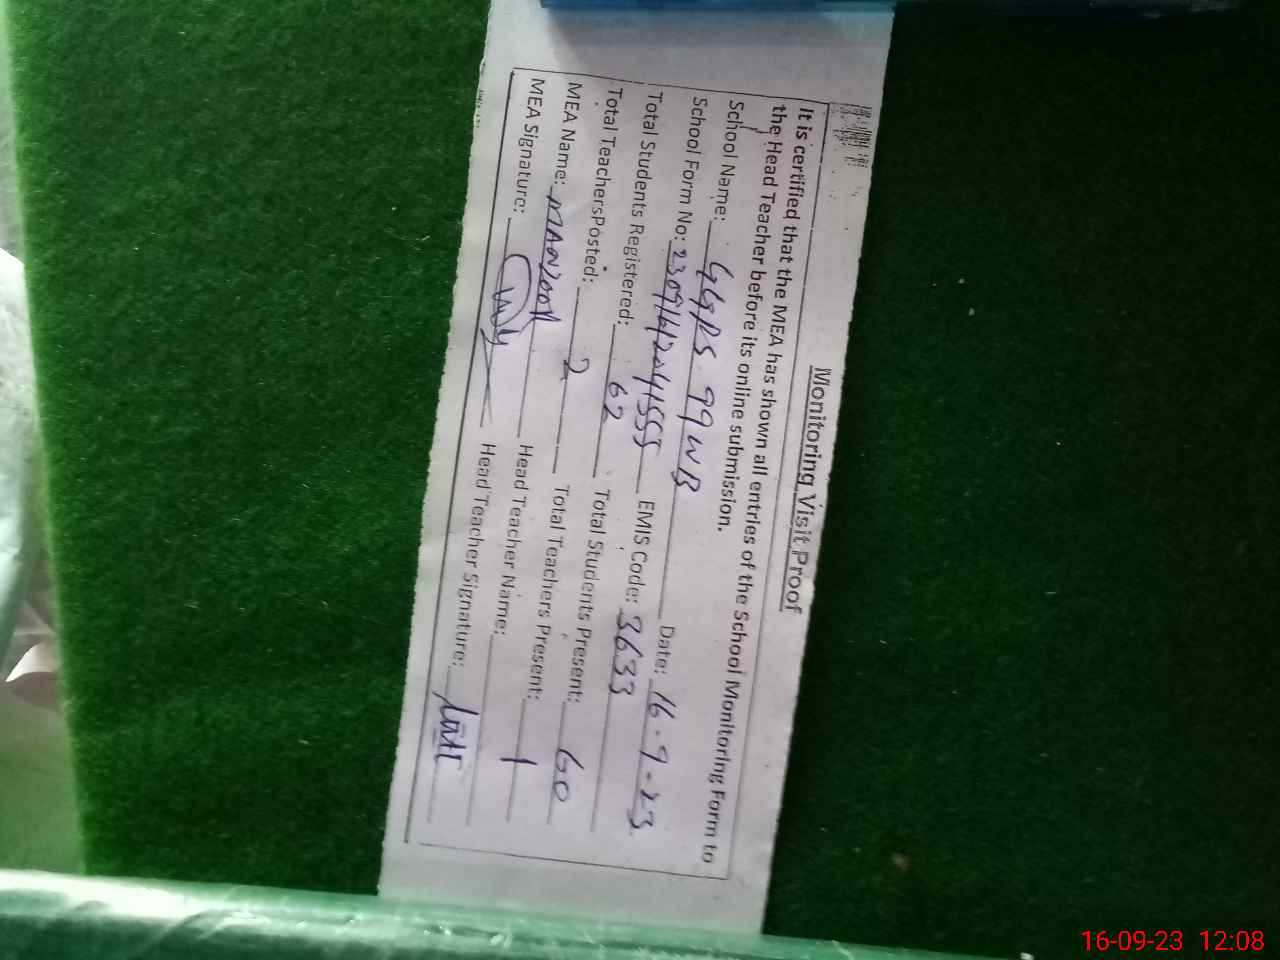 Monitoring Visit Proof
It is certified that the MEA has shown all entries of the School Monitoring Form to
the Head Teacher before its online submission.
School Name: GGPS. 99 WB Date: 16.9.23
School Form No: 23091612041555 EMIS Code: 3633
Total Students Registered: 62 Total Students Present: 60
Total TeachersPosted: 2 Total Teachers Present: 1
MEA Name: MANZOOR Head Teacher Name:
MEA Signature: Head Teacher Signature:
16-09-23 12:08